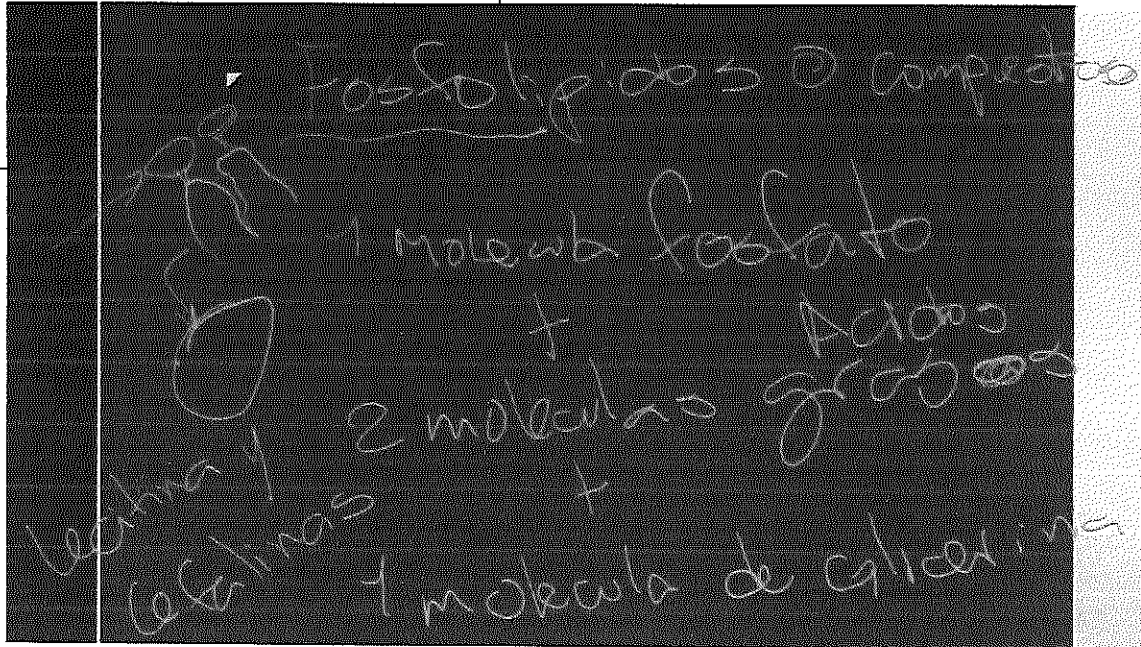 Fosfolipidos o compestos
1 molecula fosfato
+
Acidos
2 moleculas grasos
+
1 molecula de glicerina
lecitina y
cefalinas